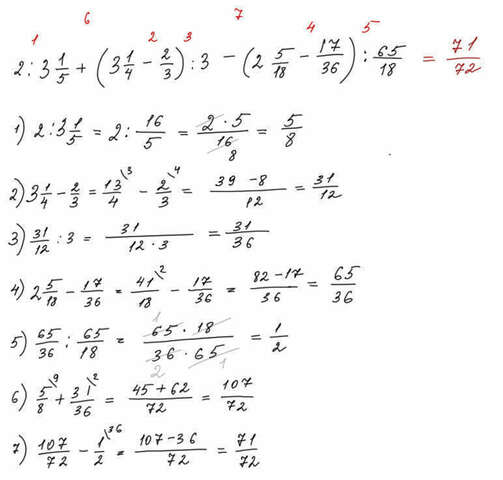 1 6 2 3 7 4 5
2 : 3 1/5 + (3 1/4 − 2/3) : 3 − (2 5/18 − 17/36) : 65/18 = 71/72
1) 2 : 3 1/5 = 2 : 16/5 = 2 · 5/16 8 = 5/8
2) 3 1/4 − 2/3 = 13/4 \3 − 2/3 \4 = 39 − 8/12 = 31/12
3) 31/12 : 3 = 31/12 · 3 = 31/36
4) 2 5/18 − 17/36 = 41/18 \2 − 17/36 = 82 − 17/36 = 65/36
5) 65/36 : 65/18 = 1 65 · 18/36 · 65 2 1 = 1/2
6) 5/8 \9 + 31/36 \2 = 45 + 62/72 = 107/72
7) 107/72 − 1/2 \36 = 107 − 36/72 = 71/72